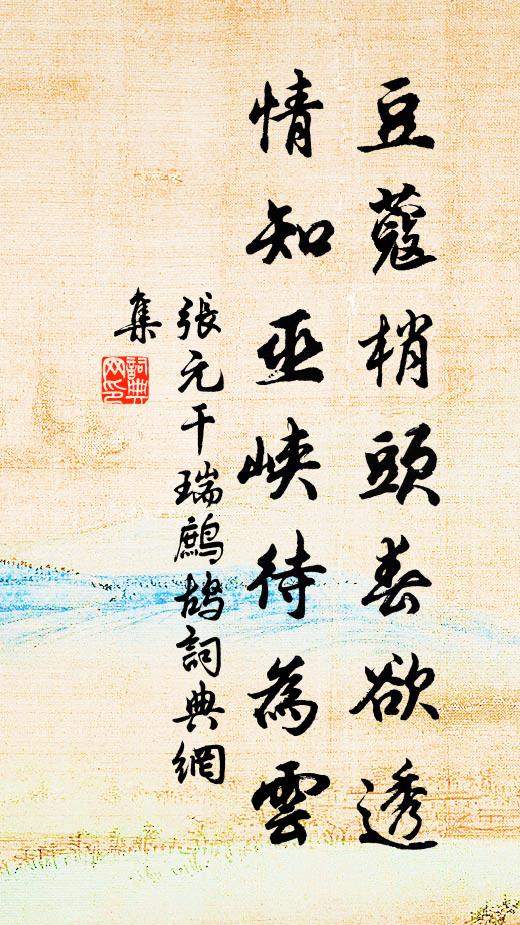 豆蔻梢頭春欲透
情知巫峽待為雲
張元干瑞鷓鴣詞典網
集
詞典
网印